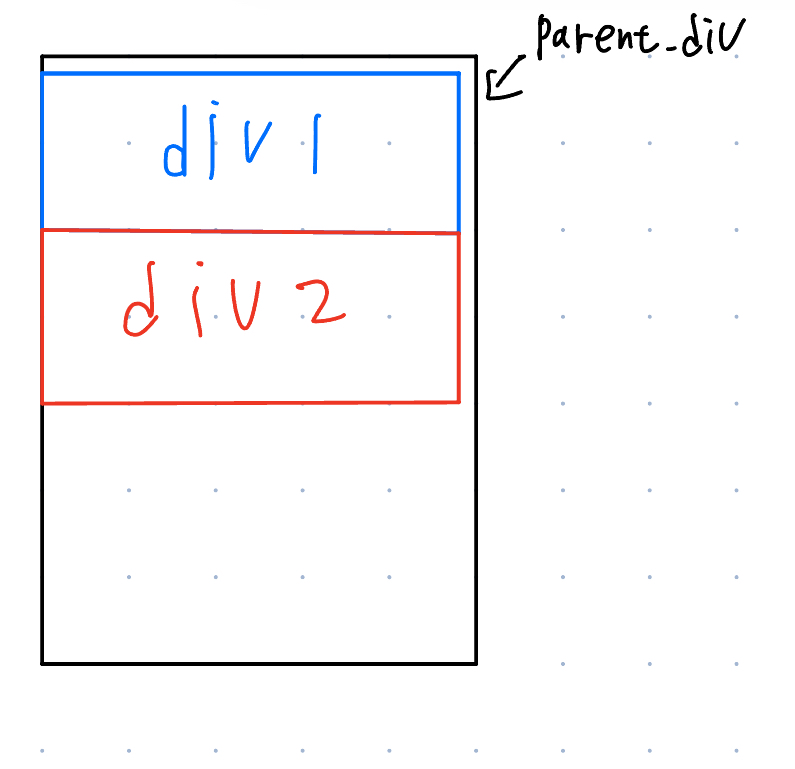 parent_div
div 1
div 2